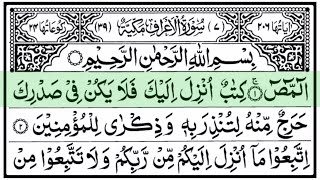 اٰيَاتُهَا ٢٠٦ (٧) سُوْرَةُ الْاَعْرَافِ مَكِّيَّةٌ (٣٩) رُكُوْعَاتُهَا ٢٤
بِسْمِ اللّٰهِ الرَّحْمٰنِ الرَّحِيْمِ
الٓمّٓصٓ ۚ﴿١﴾ كِتٰبٌ اُنْزِلَ اِلَيْكَ فَلَا يَكُنْ فِيْ صَدْرِكَ
حَرَجٌ مِّنْهُ لِتُنْذِرَ بِهٖ وَذِكْرٰى لِلْمُؤْمِنِيْنَ ﴿٢﴾
اِتَّبِعُوْا مَاۤ اُنْزِلَ اِلَيْكُمْ مِّنْ رَّبِّكُمْ وَلَا تَتَّبِعُوْا مِنْ